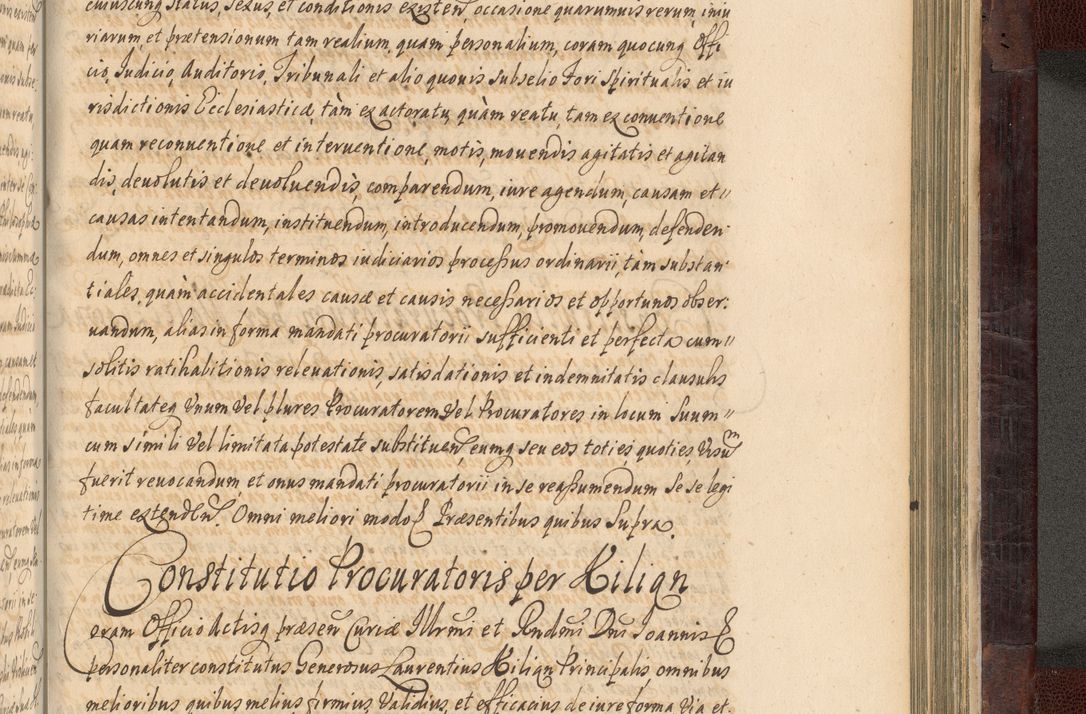 cuiuscunq̃ status, sexus, et conditionis existen̄, occasione quarumuis rerum, iniu
riarum, et prætensionum tam realium, quam personalium, coram quocunq̃ Offi
cio, Iudicio, Auditorio, Tribunali et alio quouis subselio Fori Spiritualis et iu
risdictionis Ecclesiasticæ, tàm ex actoratu, quàm reatu, tam ex conuentione
quam reconuentione et interuentione, motis, mouendis agitatis et agitan
dis, deuolutis et deuoluendis, comparendum, iure agendum, causam et
causas intentandum, instituendum, introducendum, promouendum, defenden
dum, omnes et singulos terminos iudiciarios processus ordinarii, tàm substan
tiales, quàm accidentales causæ et causis necessarios et opportunos obser:
uandum, alias in forma mandati procuratorii sufficienti et perfecta cum
solitis ratihabitionis releuationis, satisdationis et indemnitatis clausulis
facultateq̃ Vnum Vel plures Procuratorem Vel Procuratores in locum Suum
cum simili Vel limitata potestate substituen̄, eumq̃ seu eos toties quoties, Visũm
fuerit reuocandum, et onus mandati procuratorii in se reassumendum Se se legi
time extenden̄. Omni meliori modo &c Præsentibus quibus Supra.
Constitutio Procuratoris per Kilian
Coram Officio Actisq̃ præsen̄ Curiæ Illrm̄i et Rndm̄i Dn̄i Ioannis &c
personaliter constitutus Generosus Laurentius Kilian Principalis, omnibus
melioribus quibus melius firmius Validius, et efficacius de iure forma Via et